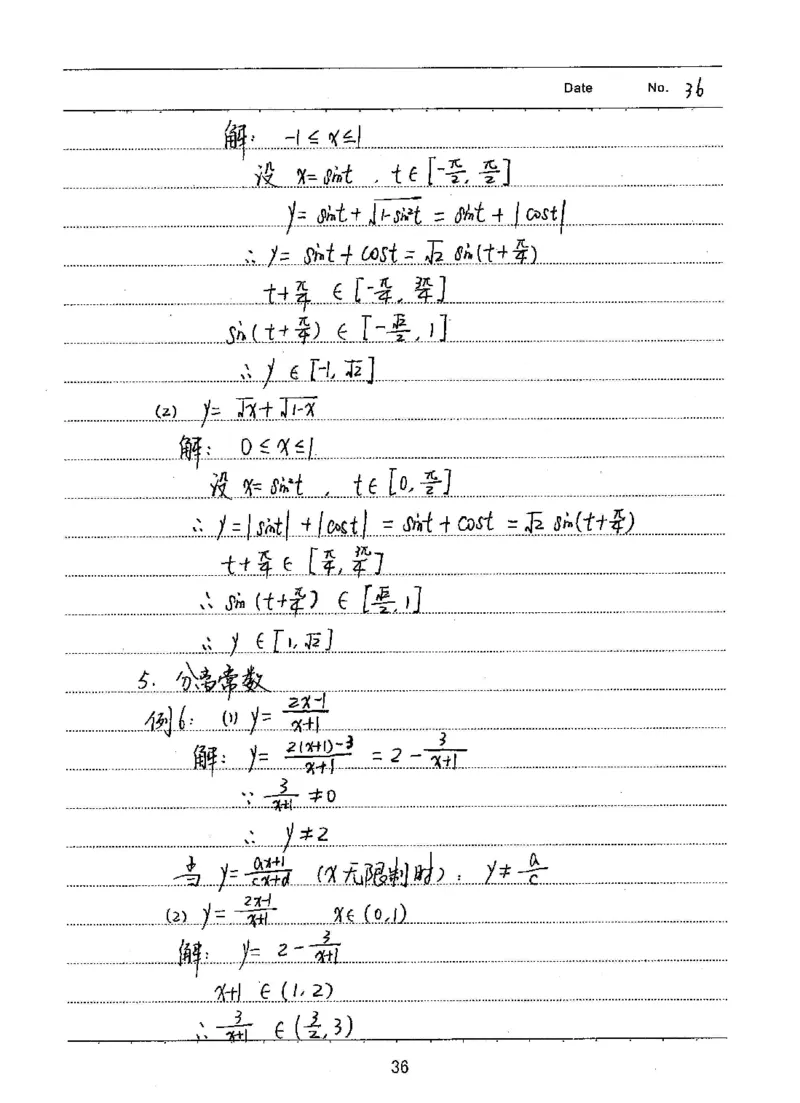 Date No. 36
解: -1≤x≤1
设 x=sint , t∈[-π/2, π/2]
y=sint+√(1-sin²t) = sint+|cost|
∴ y=sint+cost=√2 sin(t+π/4)
t+π/4 ∈[-π/4, 3π/4]
sin(t+π/4) ∈ [-√2/2, 1]
∴ y∈[-1, √2]
(2) y=√x+√(1-x)
解: 0≤x≤1
设 x=sin²t , t∈[0, π/2]
∴ y=|sint|+|cost| = sint+cost =√2 sin(t+π/4)
t+π/4∈[π/4, 3π/4]
∴ sin(t+π/4) ∈[√2/2, 1]
∴ y∈[1, √2]
5. 分离常数
例6: (1) y=(2x-1)/(x+1)
解: y=(2(x+1)-3)/(x+1) =2-3/(x+1)
∵ 3/(x+1) ≠0
∴ y≠2
当 y=(ax+1)/(cx+d) (x无限制时): y≠a/c
(2) y=(2x-1)/(x+1) x∈(0,1)
解: y=2-3/(x+1)
x+1∈(1,2)
∴ 3/(x+1) ∈(3/2,3)
36